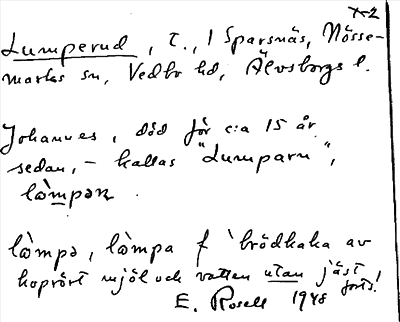 x-2
Lumperud, t., i Sparsnäs, Nösse-
marks sn, Vedbo hd, Älvsborgs l.
Johannes, död för c:a 15 år
sedan, – kallas "Lumparn",
lòmpan.
lòmpə, lòmpa f 'brödkaka av
hoprört mjöl och vatten utan jäst
forts!
E. Rosell 1948